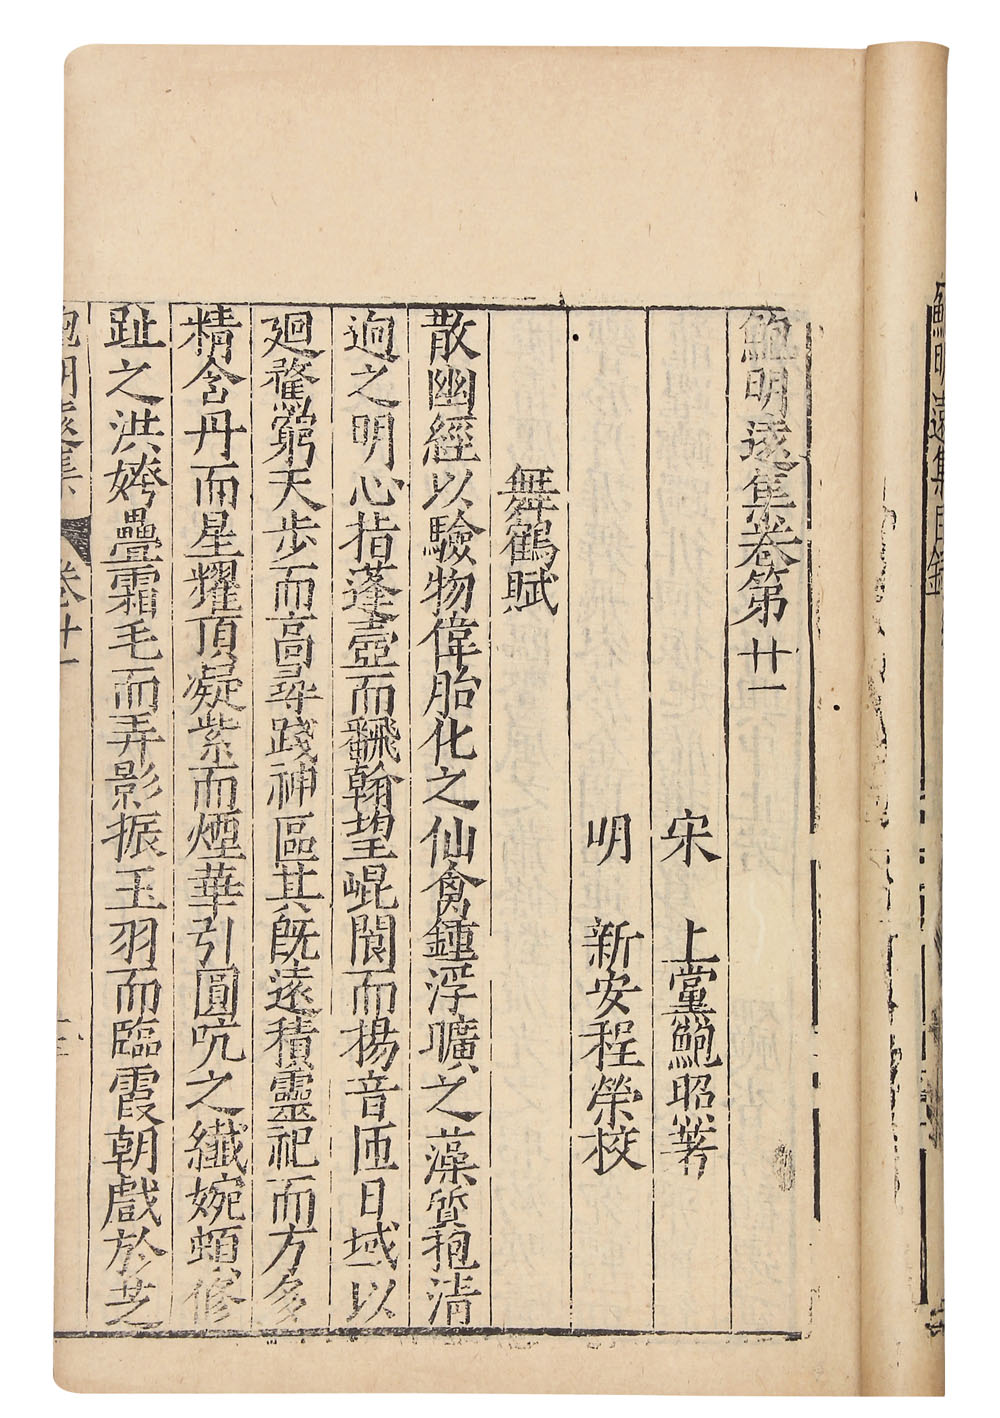 鮑明遠集卷第廿一
宋 上黨鮑照著
明 新安程榮校
舞鶴賦
散幽經以驗物偉胎化之仙禽鍾浮曠之藻質抱清
逈之明心指蓬壺而飜翰望崐閬而揚音匝日域以
廻鶩窮天步而高尋踐神區其既遠積靈祀而方多
精含丹而星耀頂凝紫而煙華引圓吭之纖婉頓修
趾之洪姱疊霜毛而弄影振玉羽而臨霞朝戲於芝
鮑明遠集 卷廿一
鮑明遠集目錄